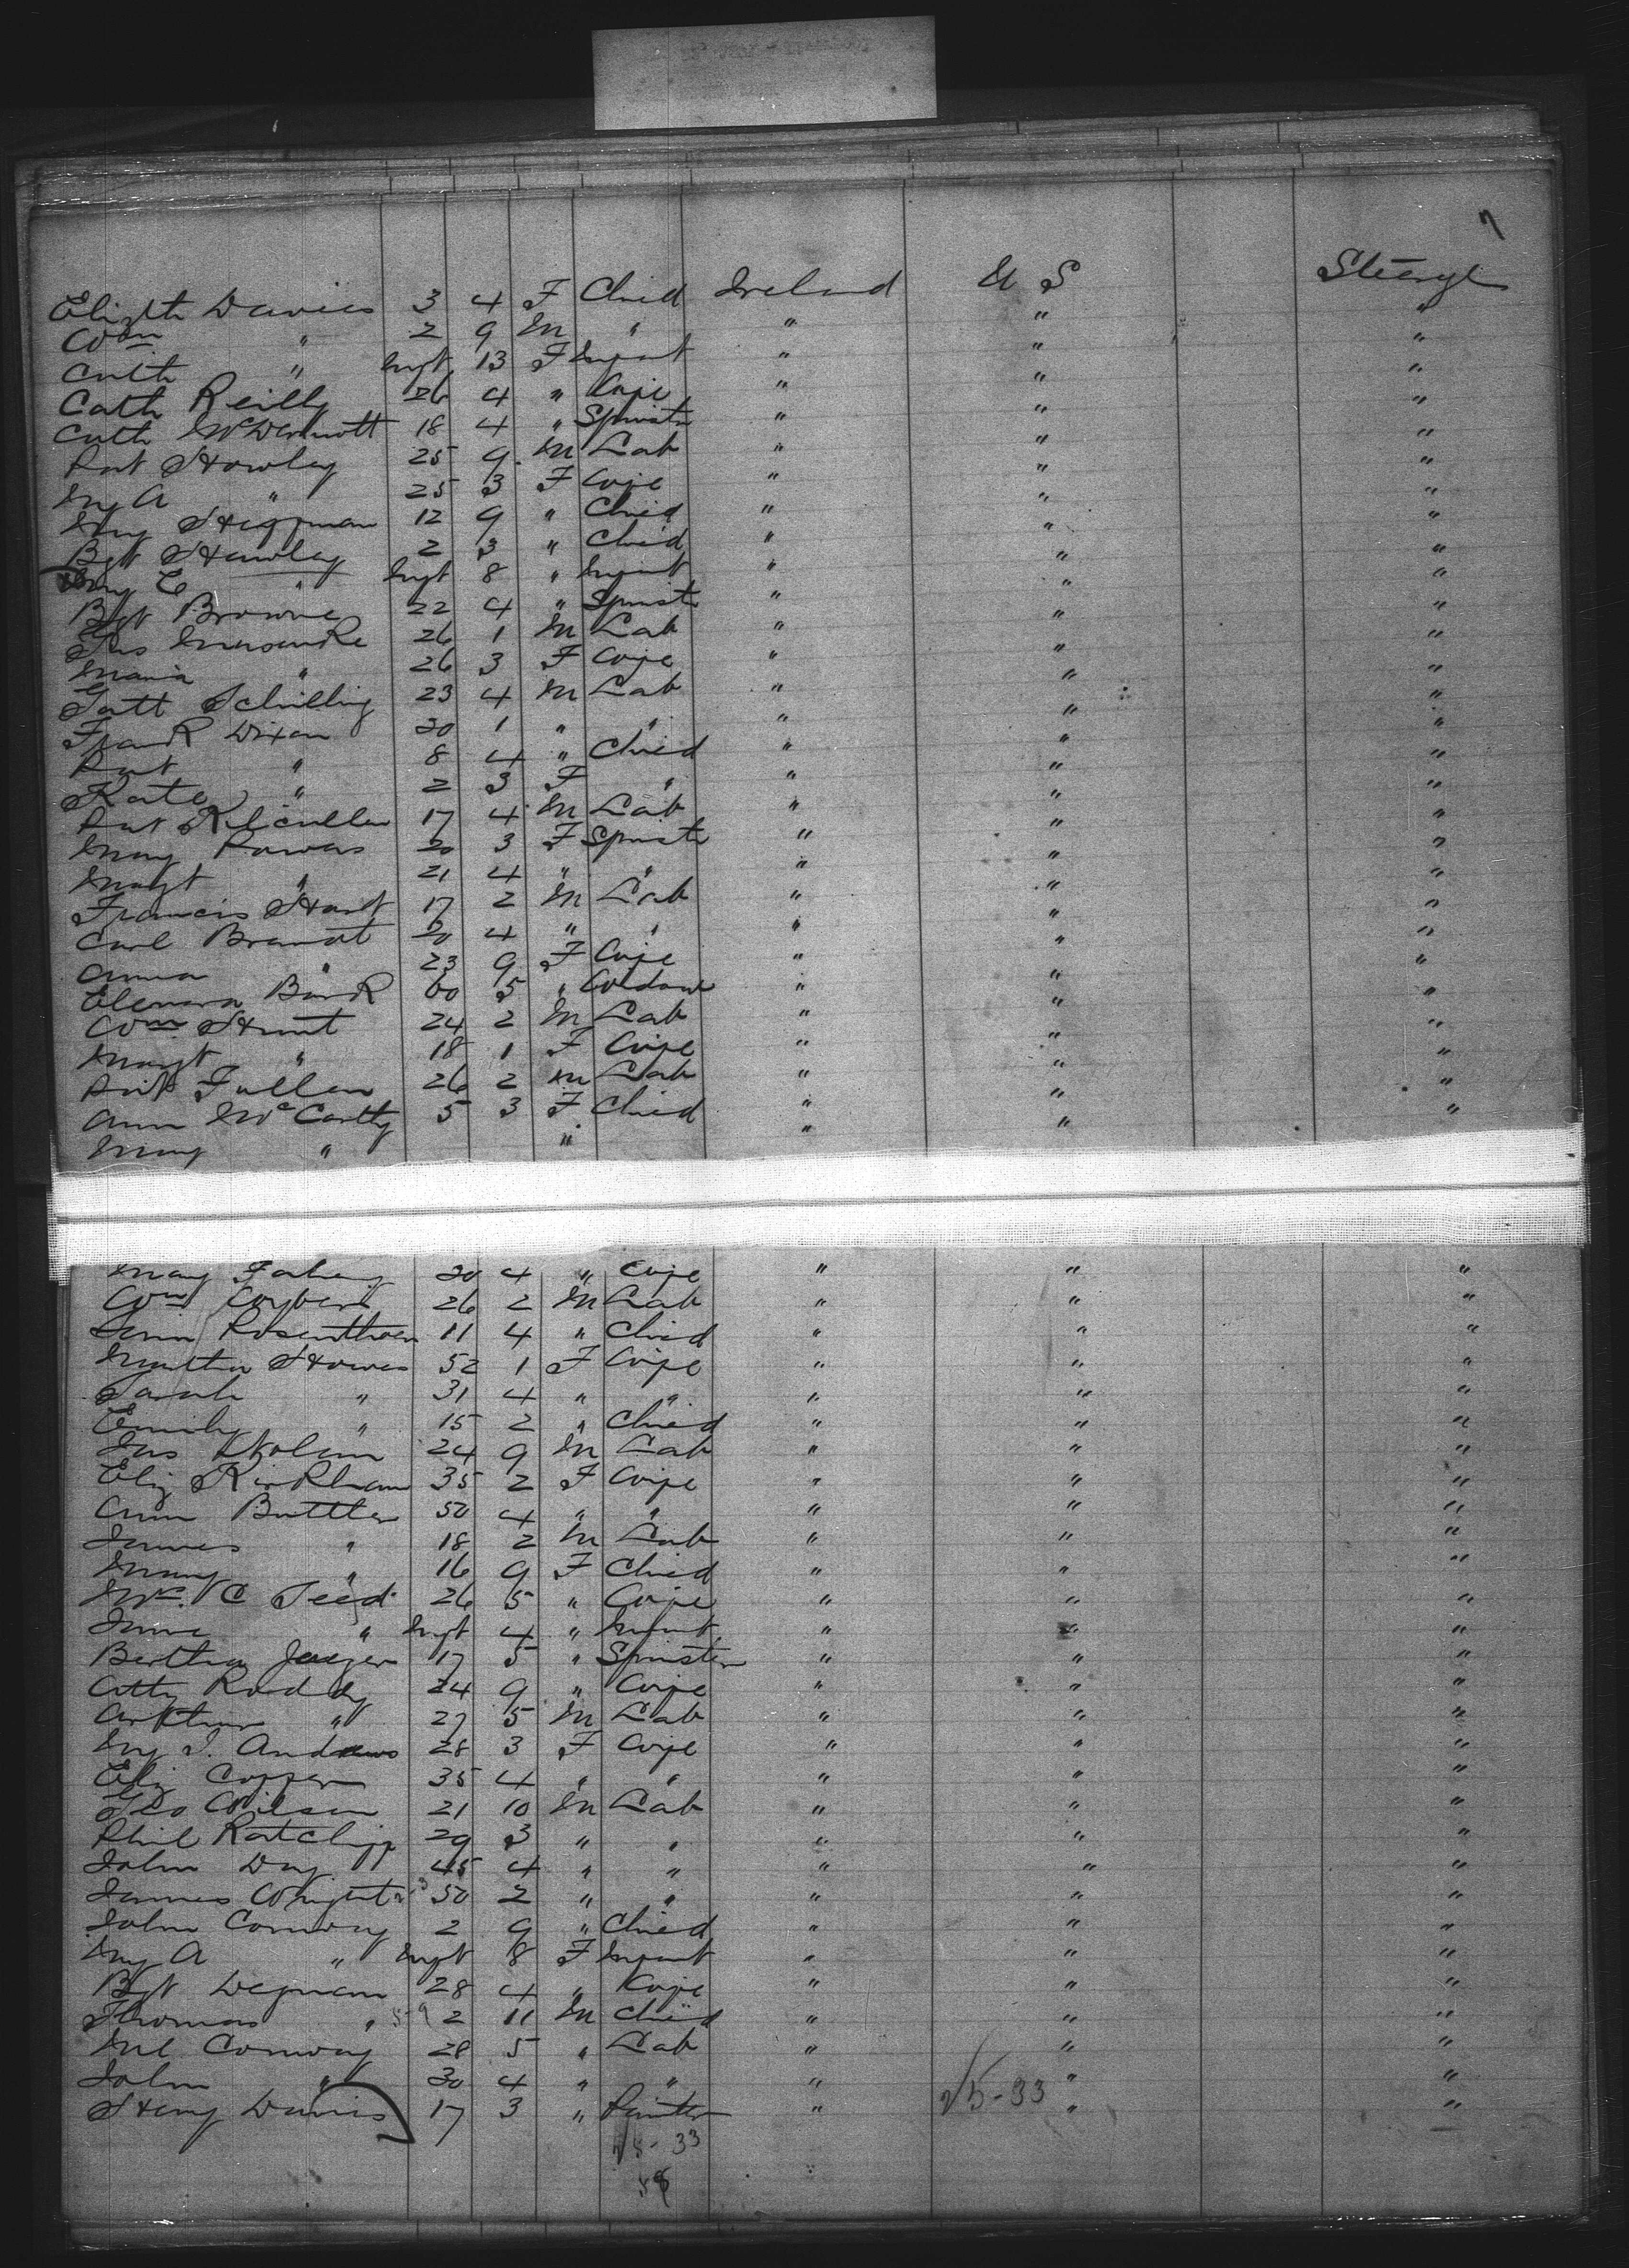 7
Elizth Davies 3 4 F Child Ireland U S Steerge
Wm " 2 9 M " " " "
Cath " Inft 13 F Infant " " "
Cath Reilly 26 4 " Wife " " "
Cath McDermott 18 4 " Spinstr " " "
Pat Howley 25 9 M Lab " " "
My A " 25 3 F Wife " " "
My Heffernan 12 9 " Child " " "
Bgt Howley 2 3 " Child " " "
My E " Inft 8 " Infant " " "
Bgt Browne 22 4 " Spinstr " " "
26 1 M Lab " " "
Maria " 26 3 F Wife " " "
Schilling 23 4 M Lab " " "
Frank Dixon 20 1 " " " " "
Pat " 8 4 " Child " " "
Kate " 2 3 F " " " "
Pat Kilcullen 17 4 M Lab " " "
Mary Powers 20 3 F Spinstr " " "
Magt " 21 4 " " " " "
Francis Hart 17 2 M Lab " " "
Carl Brandt 20 4 " " " " "
Anna " 23 9 F Wife " " "
Elenora Bark 60 5 " Widow " " "
Wm Hunt 24 2 M Lab " " "
Magt " 18 1 F Wife " " "
Pat Fullen 26 2 M Lab " " "
Ann McCarthy 5 3 F Child " " "
Mary " " " "
Mary Fahey 20 4 " Wife " " "
Wm 26 2 M Lab " " "
11 4 " Child " " "
Martha Howes 52 1 F Wife " " "
Sarah " 31 4 " " " " "
Emily " 15 2 " Child " " "
Jas Nolan 24 9 M Lab " " "
Eliz Kirkham 35 2 F Wife " " "
Ann Buttler 50 4 " " " " "
James " 18 2 M Lab " " "
Mary " 16 9 F Child " " "
Mrs. C Teed 26 5 " Wife " " "
" Inft 4 " Infant " " "
Bertha Jaeger 17 5 " Spinster " " "
Roddy 24 9 " Wife " " "
Arthur " 27 5 M Lab " " "
My J. Andrews 28 3 F Wife " " "
Eliz Copper 35 4 " " " " "
Geo Wilson 21 10 M Lab " " "
Phil Ratcliff 29 3 " " " " "
John Day 45 4 " " " " "
James Wright 50 2 " " " " "
John Conway 2 9 " Child " " "
My A " Inft 8 F Infant " " "
Bgt Degnan 28 4 " Wife " " "
Thomas " 2 11 M Child " " "
Ml Conway 28 5 " Lab " " "
John " 30 4 " " " " "
Henry Davies 17 3 " Painter " "
5-33
5-33
58